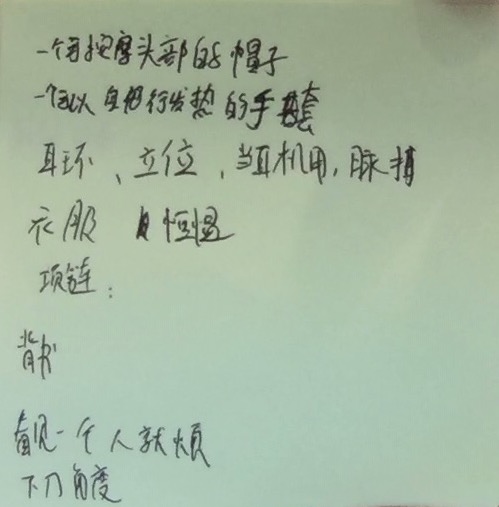 一个可按摩头部的帽子
一个可以自行发热的手套
耳环、立位,当耳机用,脉搏
衣服 恒温
项链:
背
看见一个人就烦
下刀角度